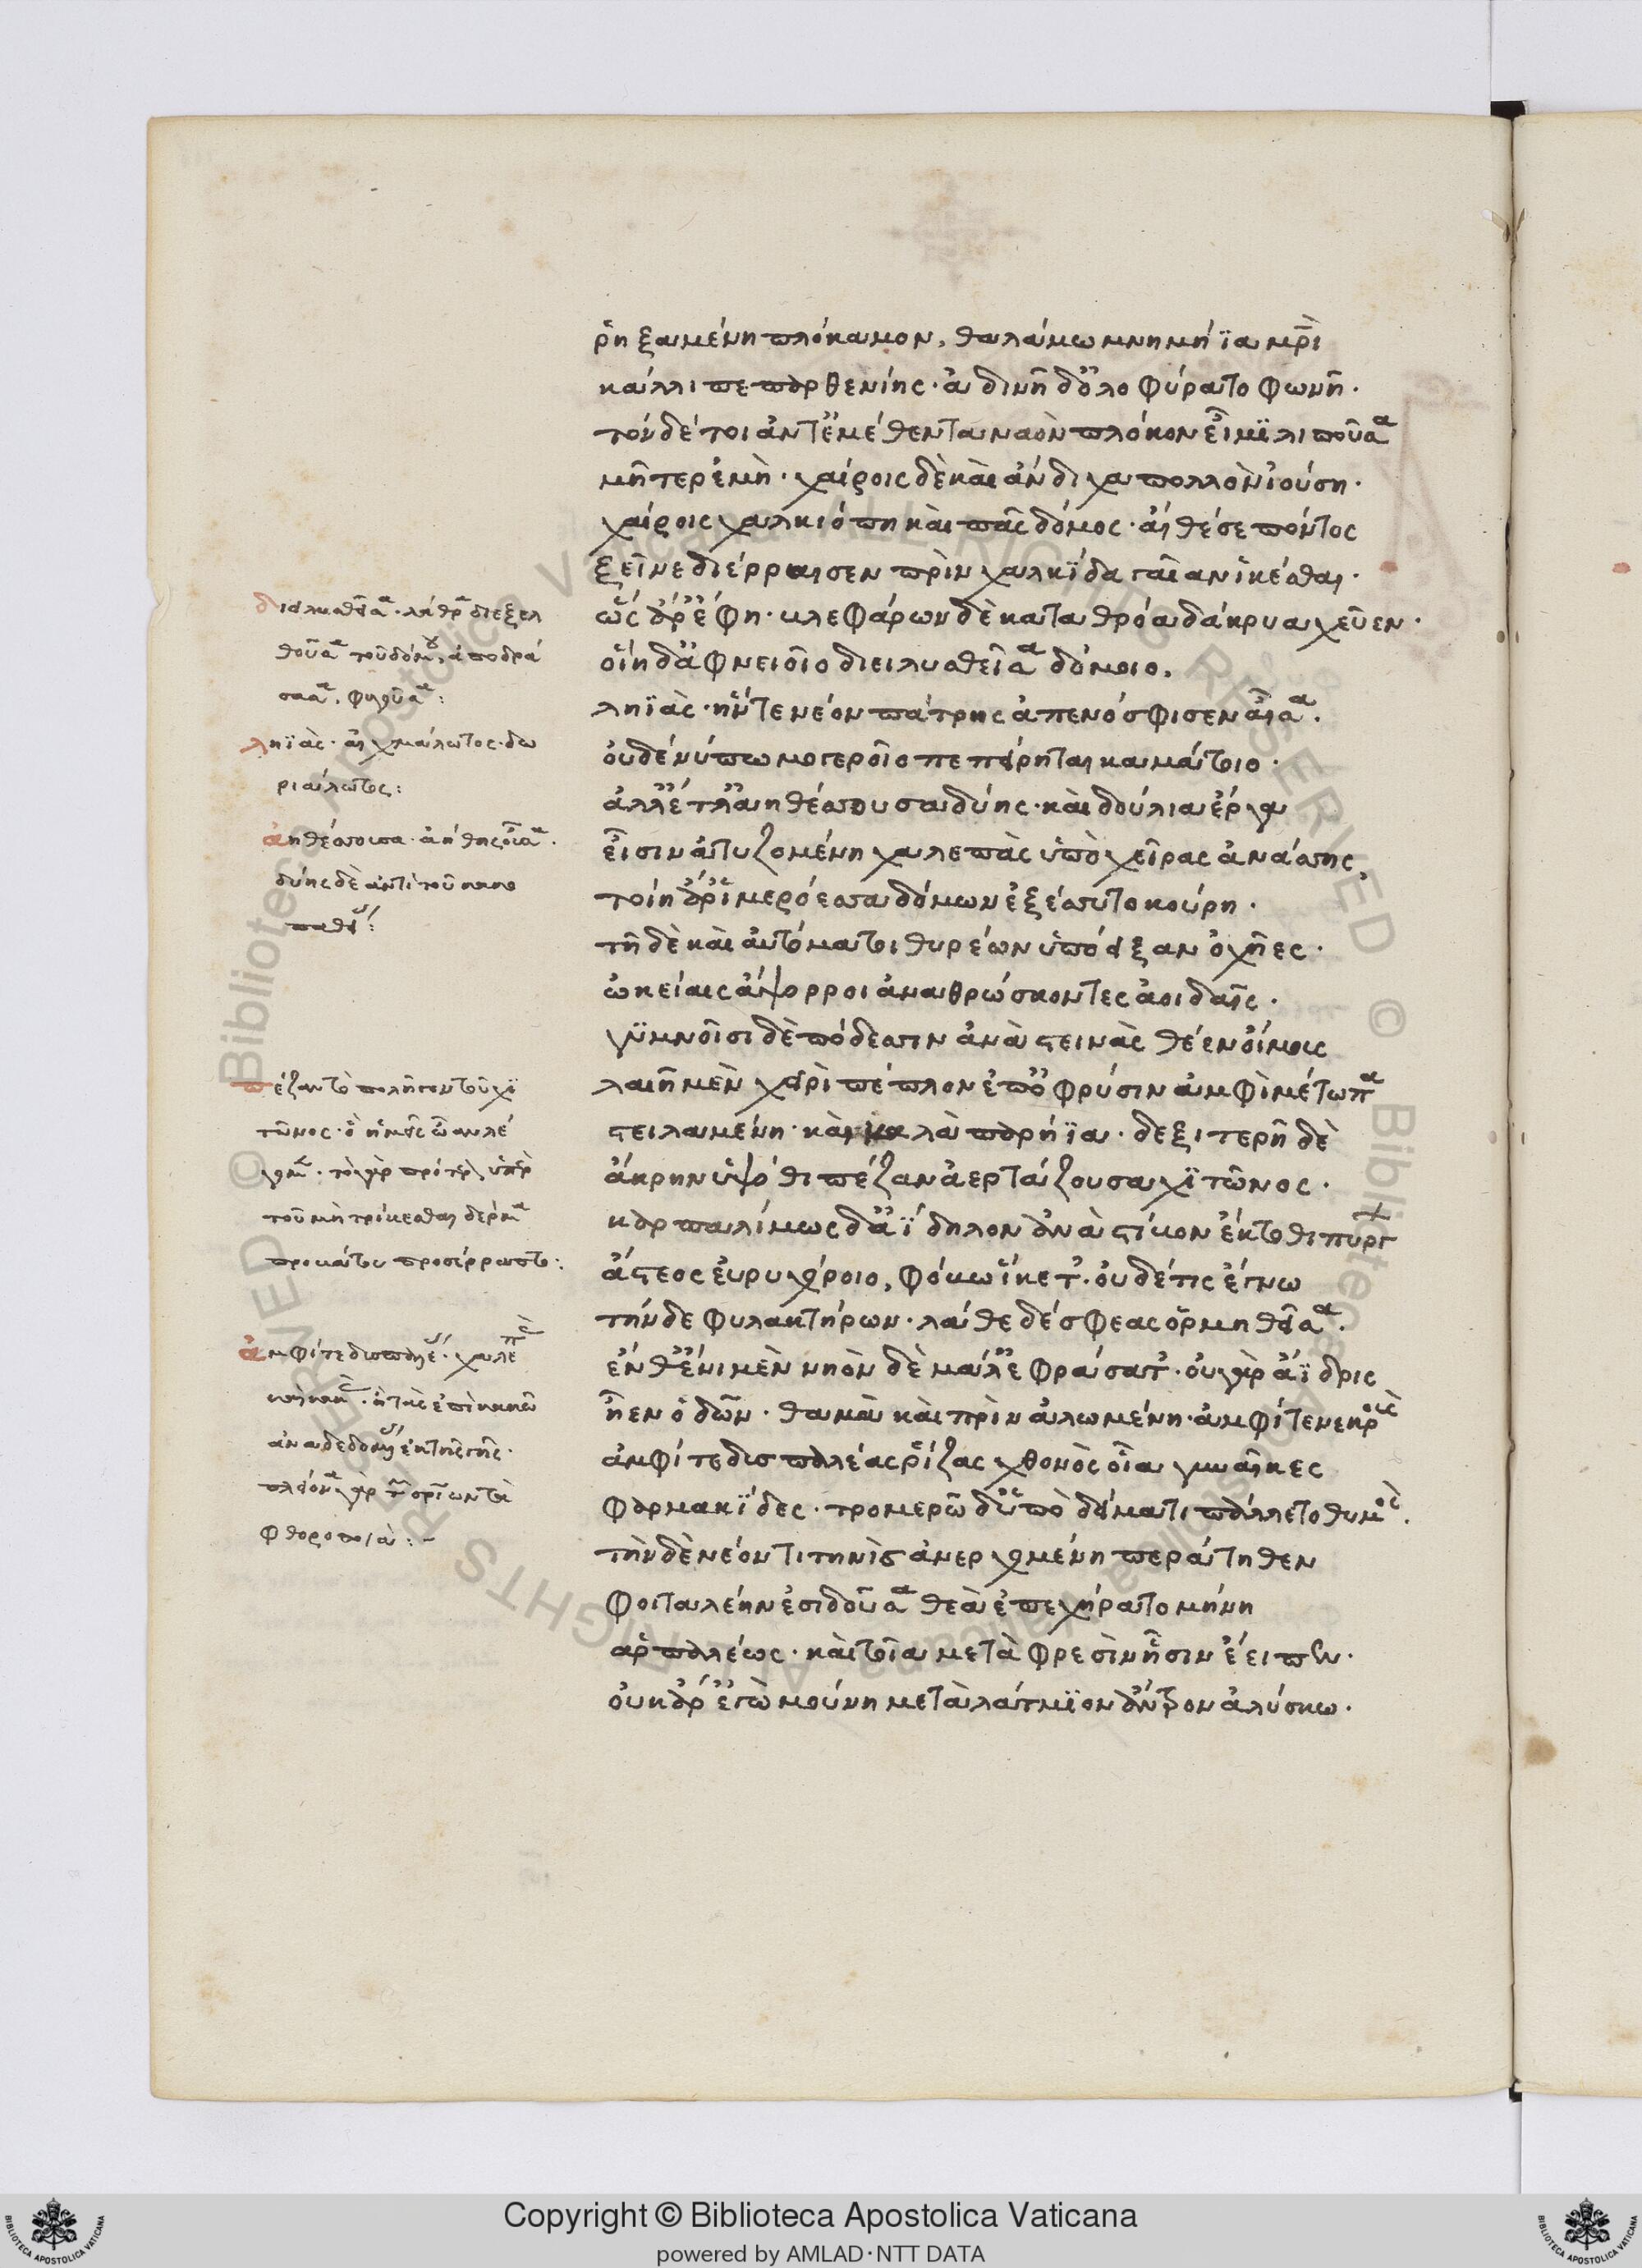 ῥηξαμένη πλόκαμον, θαλάμω μνημήϊα μητρὶ
κάλλιπε παρθενίης· ἀδινῆ δ' ὀλοφύρατο φωνῆ·
τόνδέ τοι ἀντ' ἐμέθεν ταναὸν πλόκον εἶμι λιποῦσα
μῆτερ ἐμὴ· χαίροις δὲ καὶ ἄνδιχα πολλὸν ἰούση·
χαίροις χαλκιόπη καὶ πᾶς δόμος· αἴθέ σε πόντος
ξεῖνε διέρραισεν πρὶν χαλκίδα γαῖαν ἱκέσθαι·
ὣς ἄρ' ἔφη· βλεφάρων δὲ κατ' ἀθρόα δάκρυα χεῦεν·
οἵη δ' ἀφνειοῖο διειλυσθεῖσα δόμοιο,
ληϊὰς· ἥν τε νέον πάτρης ἀπενόσφισεν αἶσα·
οὐδέ νύ πω μογεροῖο πεπείρηται καμάτοιο·
ἀλλ' ἔτ' ἀηθέσσουσα δύης· καὶ δούλια ἔργα
εἶσιν ἀτυζομένη χαλεπὰς ὑπὸ χεῖρας ἀνάσσης,
τοίη ἄρ' ἱμερόεσσα δόμων ἐξέσσυτο κούρη·
τῆ δὲ καὶ αὐτόματοι θυρέων ὑπόειξαν ὀχῆες·
ὠκείαις ἄψορροι ἀναθρώσκοντες ἀοιδαῖς·
γυμνοῖσι δὲ πόδεσσιν ἀνὰ στεινὰς θέεν οἴμους
λαιῆ μὲν χειρὶ πέπλον ἐπ' ὀφρύσιν ἀμφὶ μέτωπα
στειλαμένη· καὶ καλὰ παρήϊα· δεξιτερῆ δὲ
ἄκρην ὑψόθι πέζαν ἀερτάζουσα χιτῶνος·
καρπαλίμως δ' ἀΐδηλον ἀνὰ στίβον ἔκτοθι πύργ
ἄστεος εὐρυχόροιο, φόβω ἵκετ'· οὐδέ τις ἔγνω
τήνδε φυλακτήρων· λάθε δέ σφεας ὁρμηθεῖσα·
ἔνθ' ἔνι μὲν νηὸν δὲ μάλ' ἐφράσατ'· οὐ γὰρ ἄϊδρις
ἦεν ὁδῶν· θαμὰ καὶ πρὶν ἀλωμένη· ἀμφί τε νεκροὺς
ἀμφί τε δυσπαλέας ῥίζας χθονὸς οἷα γυναῖκες
φαρμακίδες· τρομερῶ δ' ὑπὸ δείματι πάλλετο θυμὸς·
τὴν δὲ νέον τιτηνὶς ἀνερχομένη περάτηθεν
φοιταλέην ἐσιδοῦσα θεὰ ἐπεχήρατο μήνη
ἁρπαλέως· καὶ τοῖα μετὰ φρεσὶν ἧσιν ἔειπεν·
οὐκ ἄρ' ἐγὼ μούνη μετὰ λάτμιον ἄντρον ἀλύσκω·
διειλυσθεῖσα· λάθρα διεξελ
θοῦσα τοῦ δόμου, ἀποδρά
σασα, φυγοῦσα:
ληϊὰς· αἰχμάλωτος· δο
ριάλωτος:
ἀηθέσσουσα· ἀήθης οὖσα·
δύης δὲ ἀντὶ τοῦ κακο
παθείας:
πέζαν τὸ πολῆγον τοῦ χι
τῶνος· ὃ ἡμεῖς ὤαν λέ
γομεν· τὸ γὰρ πρότερον ὑπὲρ
τοῦ μὴ τρίβεσθαι δέρμα
προβάτου προσέρραπτο:
ἀμφί τε δυσπαλέας· χαλεπὰς
καὶ κακὰς· ἢ τὰς ἐπὶ κακῶ
ἀναδεδομένας ἐκ τῆς γῆς·
πλείονα γὰρ τῶν ῥιζῶν τὰ
φθοροποιὰ:-
Copyright © Biblioteca Apostolica Vaticana
powered by AMLAD·NTT DATA